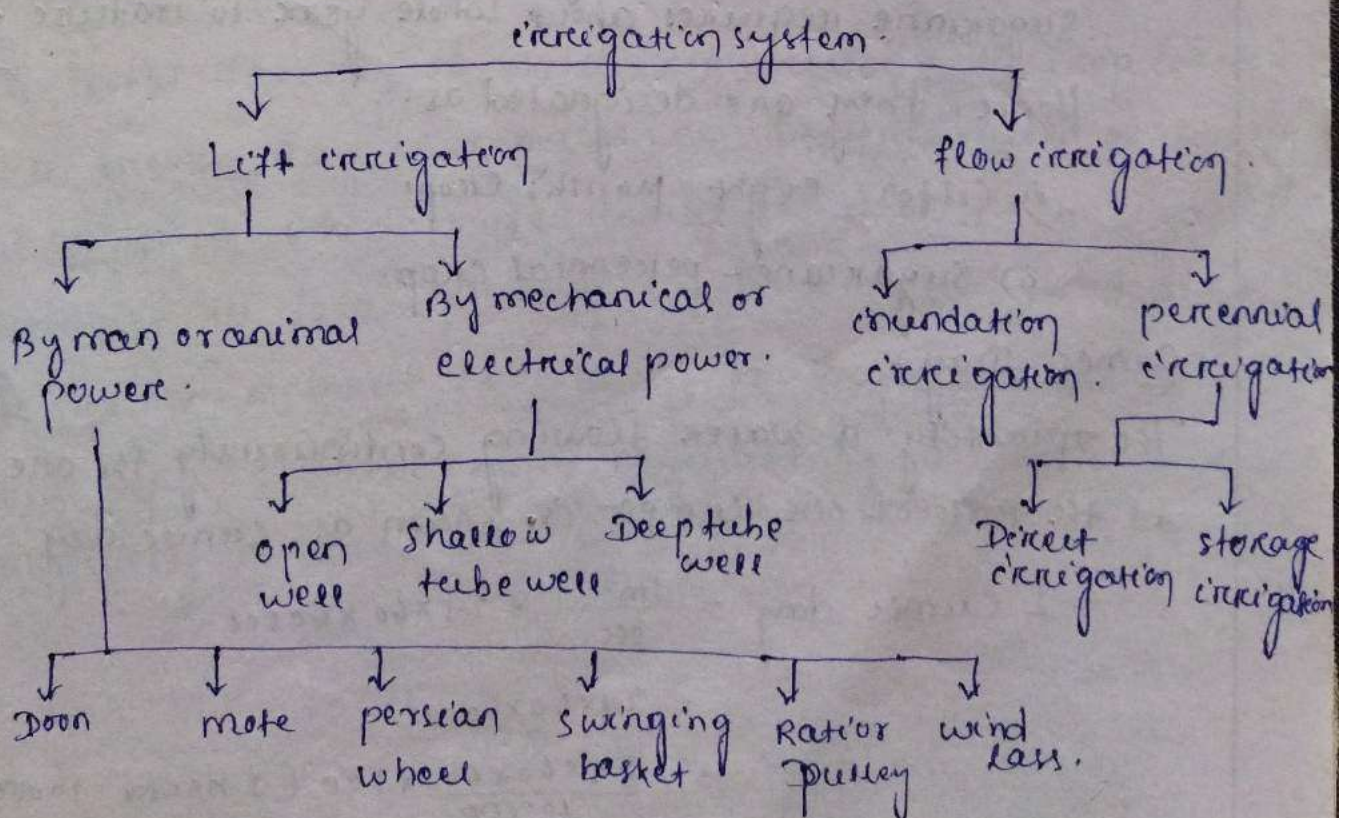 irrigation system.
Lift irrigation
flow irrigation.
By man or animal
power.
By mechanical or
electrical power.
inundation
irrigation.
perennial
irrigation
open
well
shallow
tube well
Deep tube
well
Direct
irrigation
storage
irrigation
Doon
mote
persian
wheel
swinging
basket
Rati or
pulley
wind
lass.